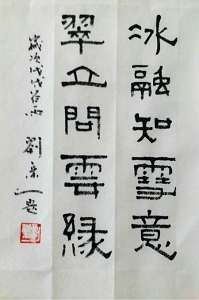 冰融知雪意
翠立問雲緣
歲次戊戌谷雨
劉
題